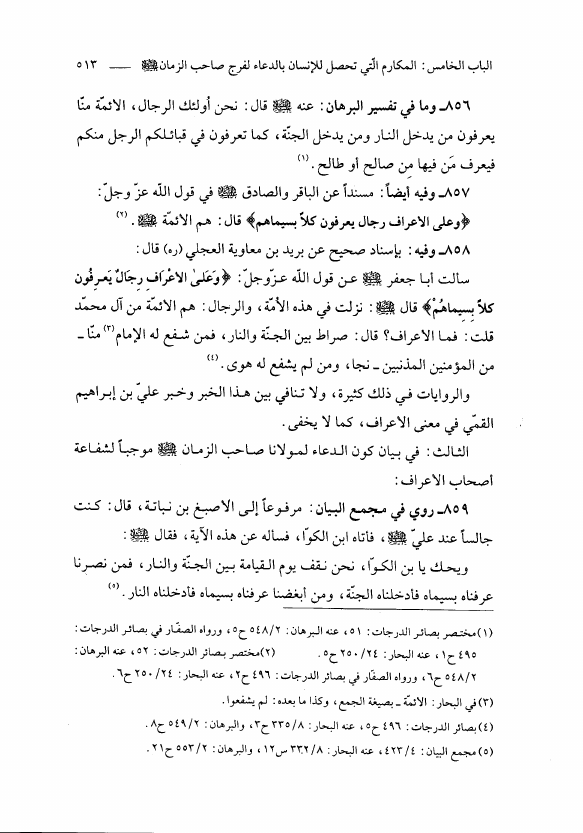 الباب الخامس: المكارم الّتي تحصل للإنسان بالدعاء لفرج صاحب الزمان ﷺ ــــ ٥١٣
٨٥٦ـ وما في تفسير البرهان: عنه ﷺ قال: نحن أولئك الرجال، الائمّة منّا
يعرفون من يدخل النار ومن يدخل الجنّة، كما تعرفون في قبائلكم الرجل منكم
فيعرف مَن فيها مِن صالح أو طالح. (١)
٨٥٧ـ وفيه أيضاً: مسنداً عن الباقر والصادق ﷺ في قول اللّه عزّ وجلّ:
﴿وعلى الاعراف رجال يعرفون كلاً بسيماهم﴾ قال: هم الائمّة ﷺ. (٢)
٨٥٨ـ وفيه: بإسناد صحيح عن بريد بن معاوية العجلي (ره) قال:
سالت أبـا جعفر ﷺ عـن قول اللّه عـزّوجلّ: ﴿وَعَلىٰ الاعْرافِ رِجالٌ يَعـرِفُون
كلاً بِسيماهُمْ﴾ قال ﷺ: نزلت في هذه الأمّة، والرجال: هم الائمّة من آل محمّد
قلت: فمـا الاعراف؟ قال: صراط بين الجـنّة والنار، فمن شـفع له الإمام(٣) منّا ـ
من المؤمنين المذنبين ـ نجا، ومن لم يشفع له هوى. (٤)
والروايات فـي ذلك كثيرة، ولا تـنافي بين هـذا الخبر وخبر عليّ بن إبـراهيم
القمّي في معنى الاعراف، كما لا يخفى.
الثـالث: في بـيان كون الـدعاء لمـولانا صـاحب الزمـان ﷺ موجبـاً لشـفاعة
أصحاب الاعراف:
٨٥٩ـ روي في مجمـع البيـان: مرفـوعاً إلـى الاصبـغ بن نبـاتـة، قال: كـنت
جالسـاً عند عليّ ﷺ، فأتاه ابن الكوّا، فسأله عن هذه الآية، فقال ﷺ:
ويحـك يا بن الكـوّا، نحن نـقف يوم القـيامة بـين الجـنّة والنـار، فمن نصـرنا
عرفناه بسيماه فأدخلناه الجنّة، ومن أبغضنا عرفناه بسيماه فأدخلناه النار. (٥)
(١) مختصر بصائر الدرجات: ٥١، عنه البرهان: ٥٤٨/٢ ح٥، ورواه الصفّار في بصائر الدرجات:
٤٩٥ ح١، عنه البحار: ٢٥٠/٢٤ ح٥. (٢) مختصر بصائر الدرجات: ٥٢، عنه البرهان:
٥٤٨/٢ ح٦، ورواه الصفّار في بصائر الدرجات: ٤٩٦ ح٢، عنه البحار: ٢٥٠/٢٤ ح٦.
(٣) في البحار: الائمّة ـ بصيغة الجمع، وكذا ما بعده: لم يشفعوا.
(٤) بصائر الدرجات: ٤٩٦ ح٥، عنه البحار: ٣٣٥/٨ ح٣، والبرهان: ٥٤٩/٢ ح٨.
(٥) مجمع البيان: ٤٢٣/٤، عنه البحار: ٣٣٢/٨ س١٢، والبرهان: ٥٥٣/٢ ح٢١.